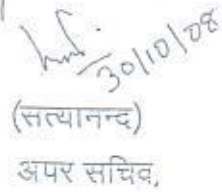 30/10/08
(सत्यानन्द)
अपर सचिव,